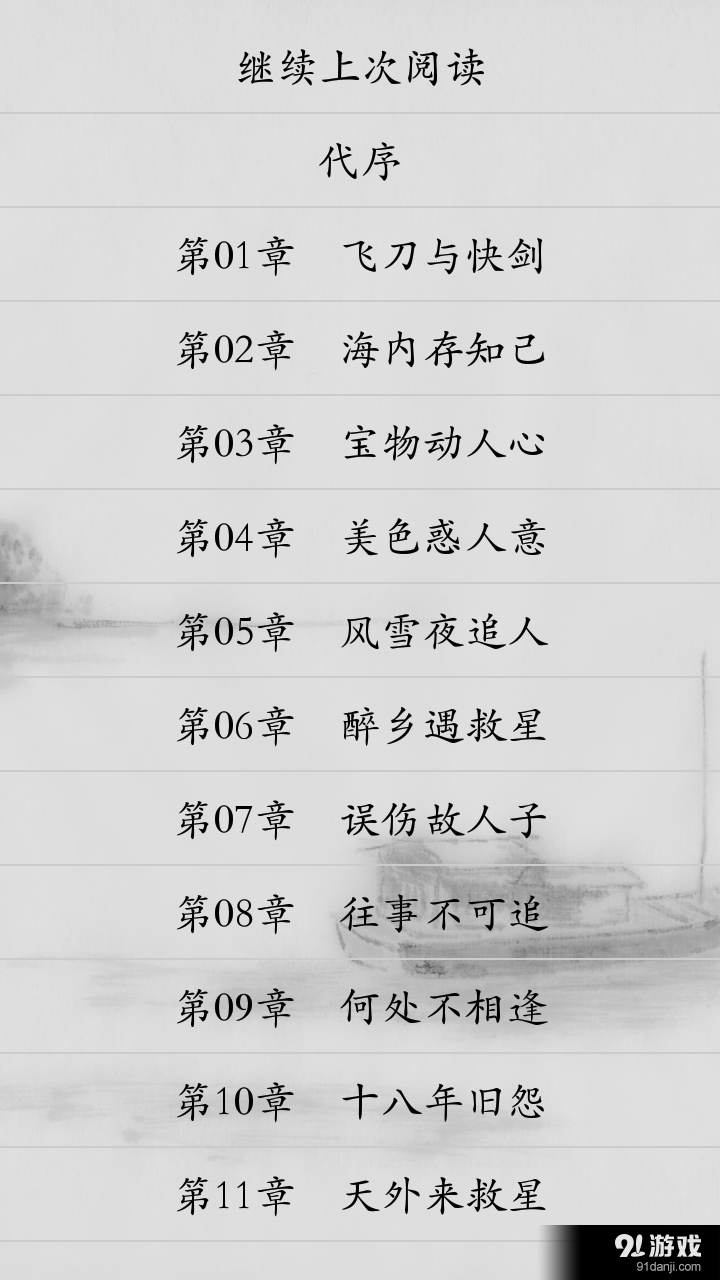 继续上次阅读
代序
第01章 飞刀与快剑
第02章 海内存知己
第03章 宝物动人心
第04章 美色惑人意
第05章 风雪夜追人
第06章 醉乡遇救星
第07章 误伤故人子
第08章 往事不可追
第09章 何处不相逢
第10章 十八年旧怨
第11章 天外来救星
91游戏
91danji.com